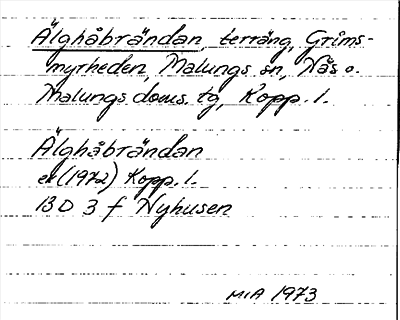 Älghåbrändan, terräng, Grims-
myrheden, Malungs sn, Nås o.
Malungs doms. tg, Kopp. l.
Älghåbrändan
ek (1972) Kopp. l.
13 D 3 f Nyhusen
MIA 1973